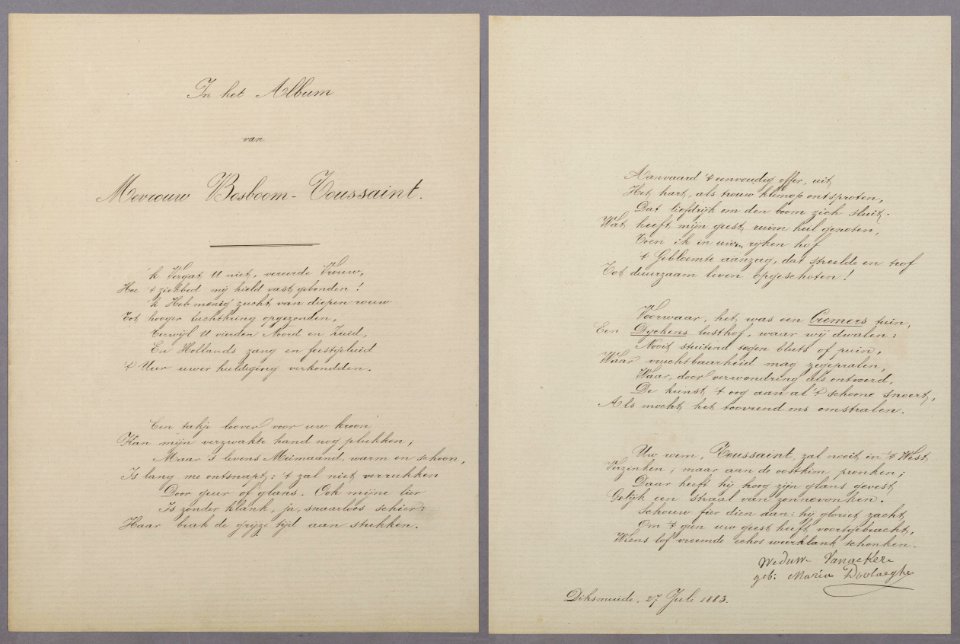 In het Album
van
Mevrouw Bosboom-Toussaint.
'k Vergat U niet, vereerde Vrouw,
Hoe 't ziekbed mij hield vast gebonden!
'k Heb menig zucht, van diepen rouw
Tot hooger opgezonden,
Terwijl U vierden Noord en Zuid,
En Hollands zang en feestgeluid
't Uur uwer huldiging verkondden.
Een takje loover voor uw kroon
Kan mijn verzwakte hand nog plukken,
Maar 's levens Meimaand, warm en schoon,
Is lang me ontsnapt; 't zal niet verrukken
Door geur of glans. Ook mijne lier
Is zonder klank, ja, snaarloos schier:
Haar brak de grijze tijd aan stukken.
Aanvaard 't eenvoudig offer, uit
Het hart, als trouw klimop ontsproten,
Dat liefdrijk om den boom zich sluit.
Wat heeft mijn geest ruim heil genoten,
Toen ik in uwen rijken hof
't Gebloemte aanzag, dat streelde en trof
Tot duurzaam leven opgeschoten!
Voorwaar, het was een Cremers tuin,
Een Dyckens lusthof, waar wij dwalen;
Nooit stuitend tegen bluts of puin,
Waar vruchtbaarheid mag zegepralen,
Waar, door verwondring als ontroerd,
De kunst 't oog aan al 't schoone snoert,
Als mocht het toovrend ons omstralen.
Uw roem, Toussaint, zal nooit in 't West
Verzinken; maar aan de oostkim pronken;
Daar heeft hij hoog zijn glans gevest,
Gelijk een straal van zonnevonken.
Schouw fier dien aan: hij gloriet zacht,
Om 't geen uw geest heeft voortgebracht,
Wiens lof vreemde echos weerklank schonken.
Weduwe Vanackere
geb. Maria Doolaeghe
Diksmuide, 27 Juli 1883.